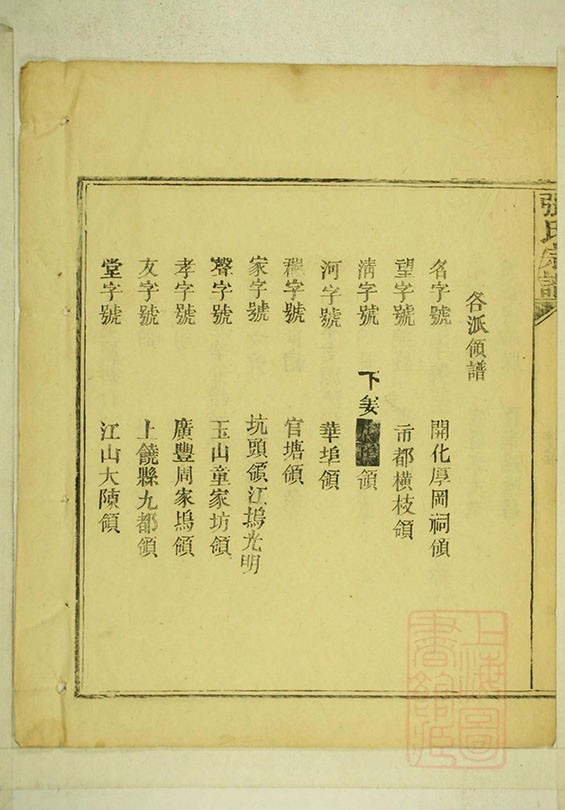 張氏宗譜
各派領譜
名字號 開化厚岡祠領
望字號 市都橫枝領
清字號 下姜領
河字號 華埠領
字號 官塘領
家字號 坑頭領江塢光明
聲字號 玉山童家坊領
孝字號 廣豐周家塢領
友字號 上饒縣九都領
堂字號 江山大陳領
上海圖書館藏